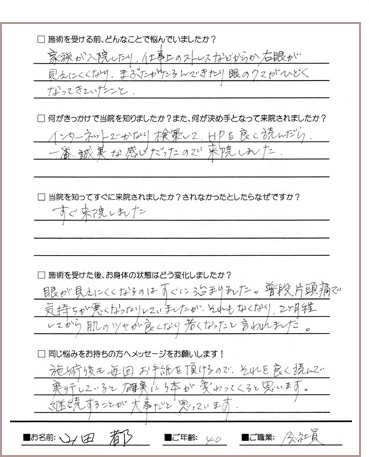 □ 施術を受ける前、どんなことで悩んでいましたか？
家族が入院したり、仕事上のストレスなどからか右眼が
見えにくくなり、まぶたがたるんできたり眼のクマがひどく
なってきていたこと。
□ 何がきっかけで当院を知りましたか？また、何が決め手となって来院されましたか？
インターネットでかなり検索して、HPを良く読んだら、
一番誠実な感じだったので来院しました。
□ 当院を知ってすぐに来院されましたか？されなかったとしたらなぜですか？
すぐ来院しました
□ 施術を受けた後、お身体の状態はどう変化しましたか？
眼が見えにくくなるのはすぐに治まりました。普段片頭痛で
気持ちが悪くなったりしていましたが、それもなくなり、2ヶ月経
してから肌のツヤが良くなり若くなったと言われました。
□ 同じ悩みをお持ちの方へメッセージをお願いします！
施術後も毎回お手紙を頂けるので、それを良く読んで
実行していると確実に体が変わってくると思います。
継続することが大事だと思っています。
■お名前: 山田 都 ■ご年齢: 40 ■ご職業: 会社員